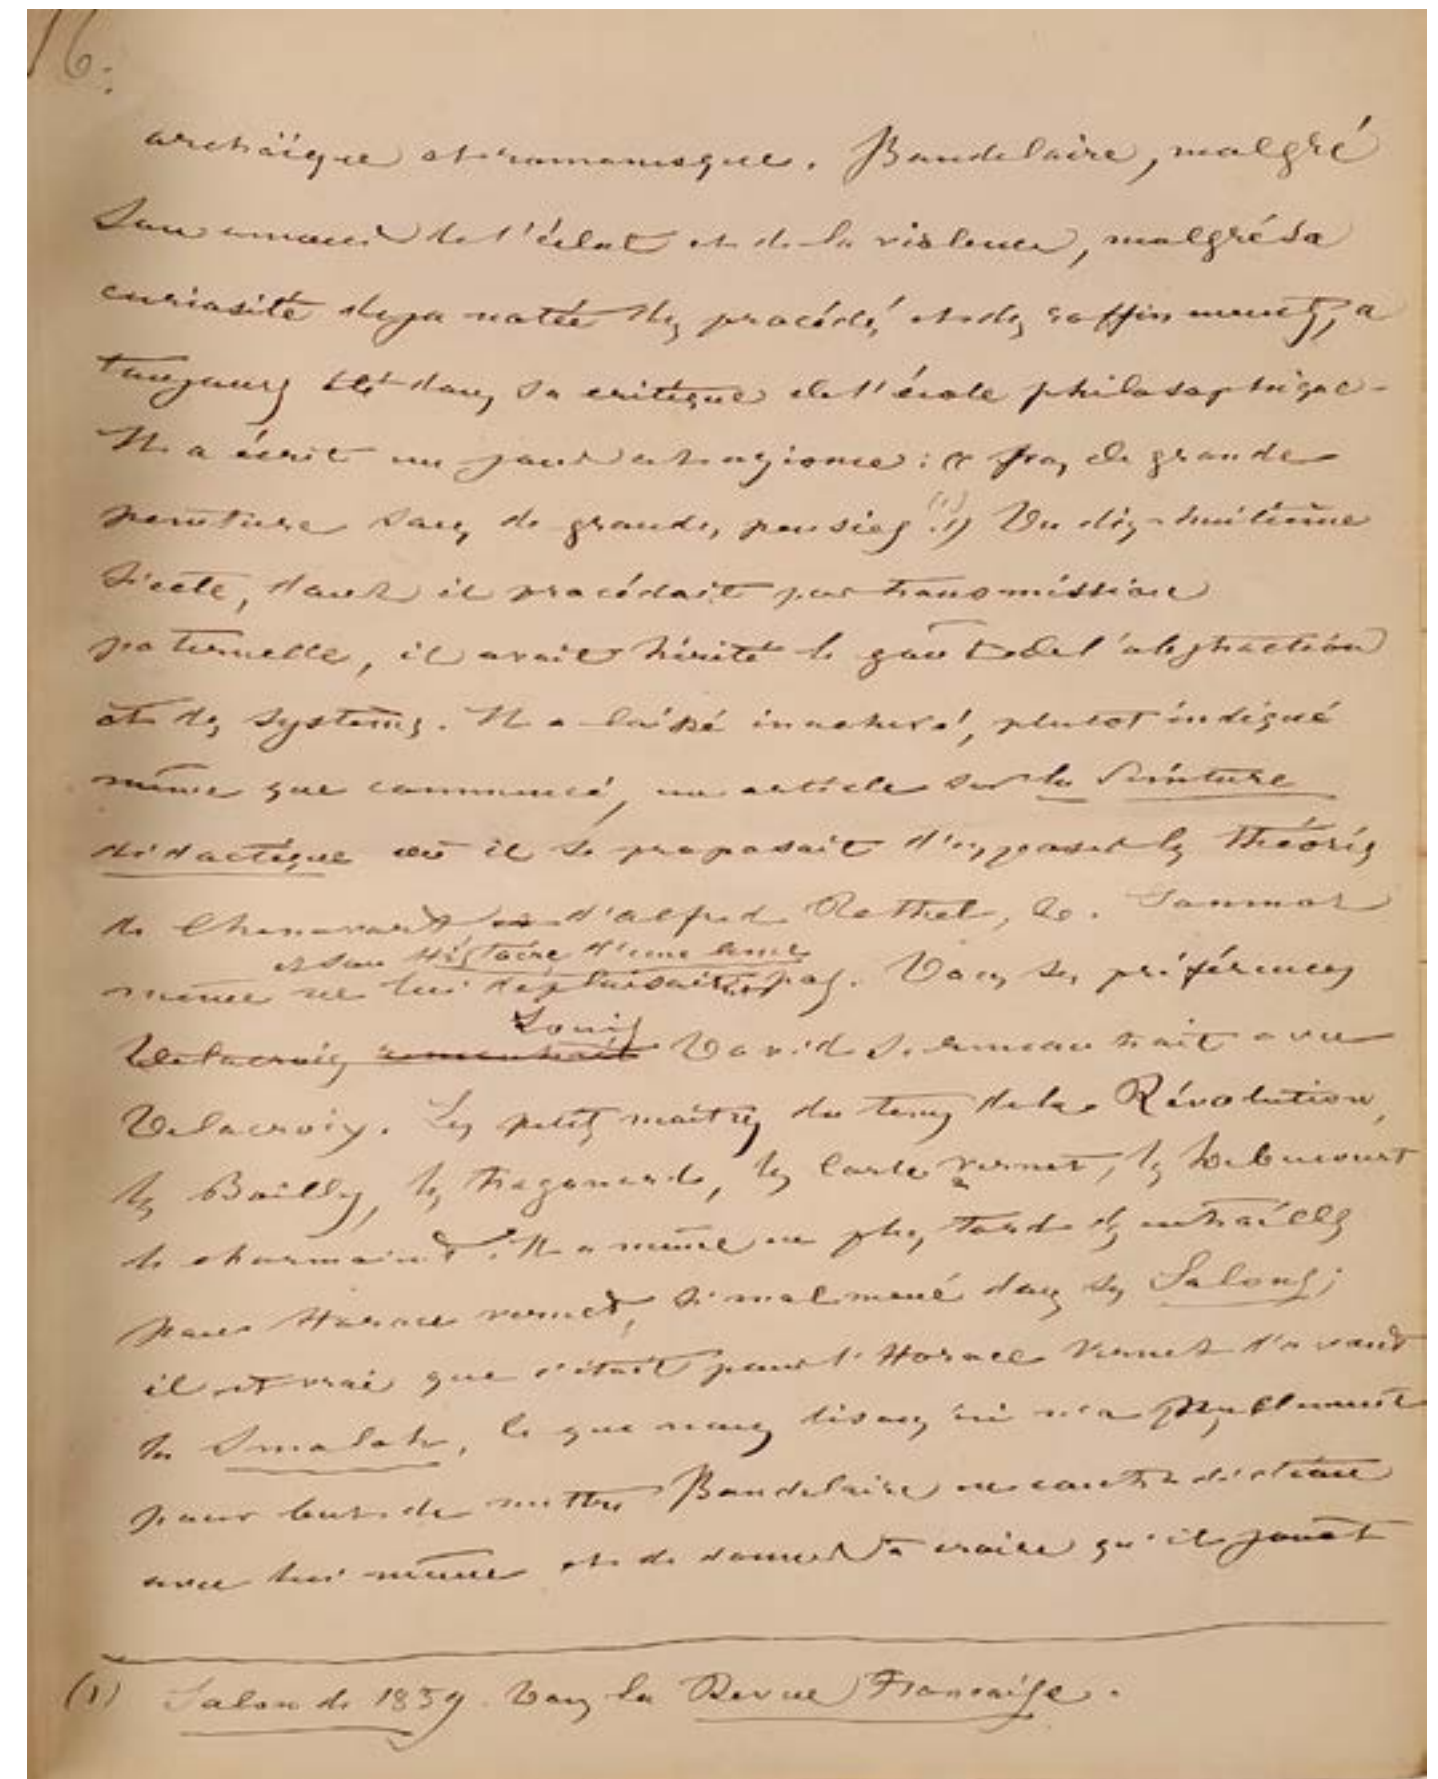 16.
archaïque et romanesque. Baudelaire, malgré
son amour de l'éclat et de la violence, malgré sa
curiosité deja notée des procédés et des raffinements, a
toujours été dans sa critique de l'école philosophique-
Il a écrit un jour cet axiome : « pas de grande
peinture sans de grandes pensées (1). » Du dix-huitième
siecle, dont il procédait par transmission
paternelle, il avait hérité le goût de l'abstraction
et des systèmes. Il a laissé inachevé, plutot indiqué
même que commencé, un article sur la Peinture
didactique où il se proposait d'exposer les théories
de Chenavard d'alfred Rethel, &c. Janmot
et son Histoire d'une âme
même ne lui déplaisaient pas. Dans ses préférences
Louis
Delacroix remontait David se rencontrait avec
Delacroix. Les petits maîtres du tems de la Révolution,
les Boilly, les fragonards, les Carle Vernet, les Debucourt
le charmaient. Il a même eu plus tard des entrailles
pour Horace vernet, si malmené dans ses Salons;
il est vrai que c'était pour l'Horace Vernet d'avant
la Smalah. Ce que nous disons ici n'a nullement
pour but de mettre Baudelaire en contradiction
avec lui même et de donner à croire qu'il jouât
(1) Salon de 1859. Dans la Revue Française.